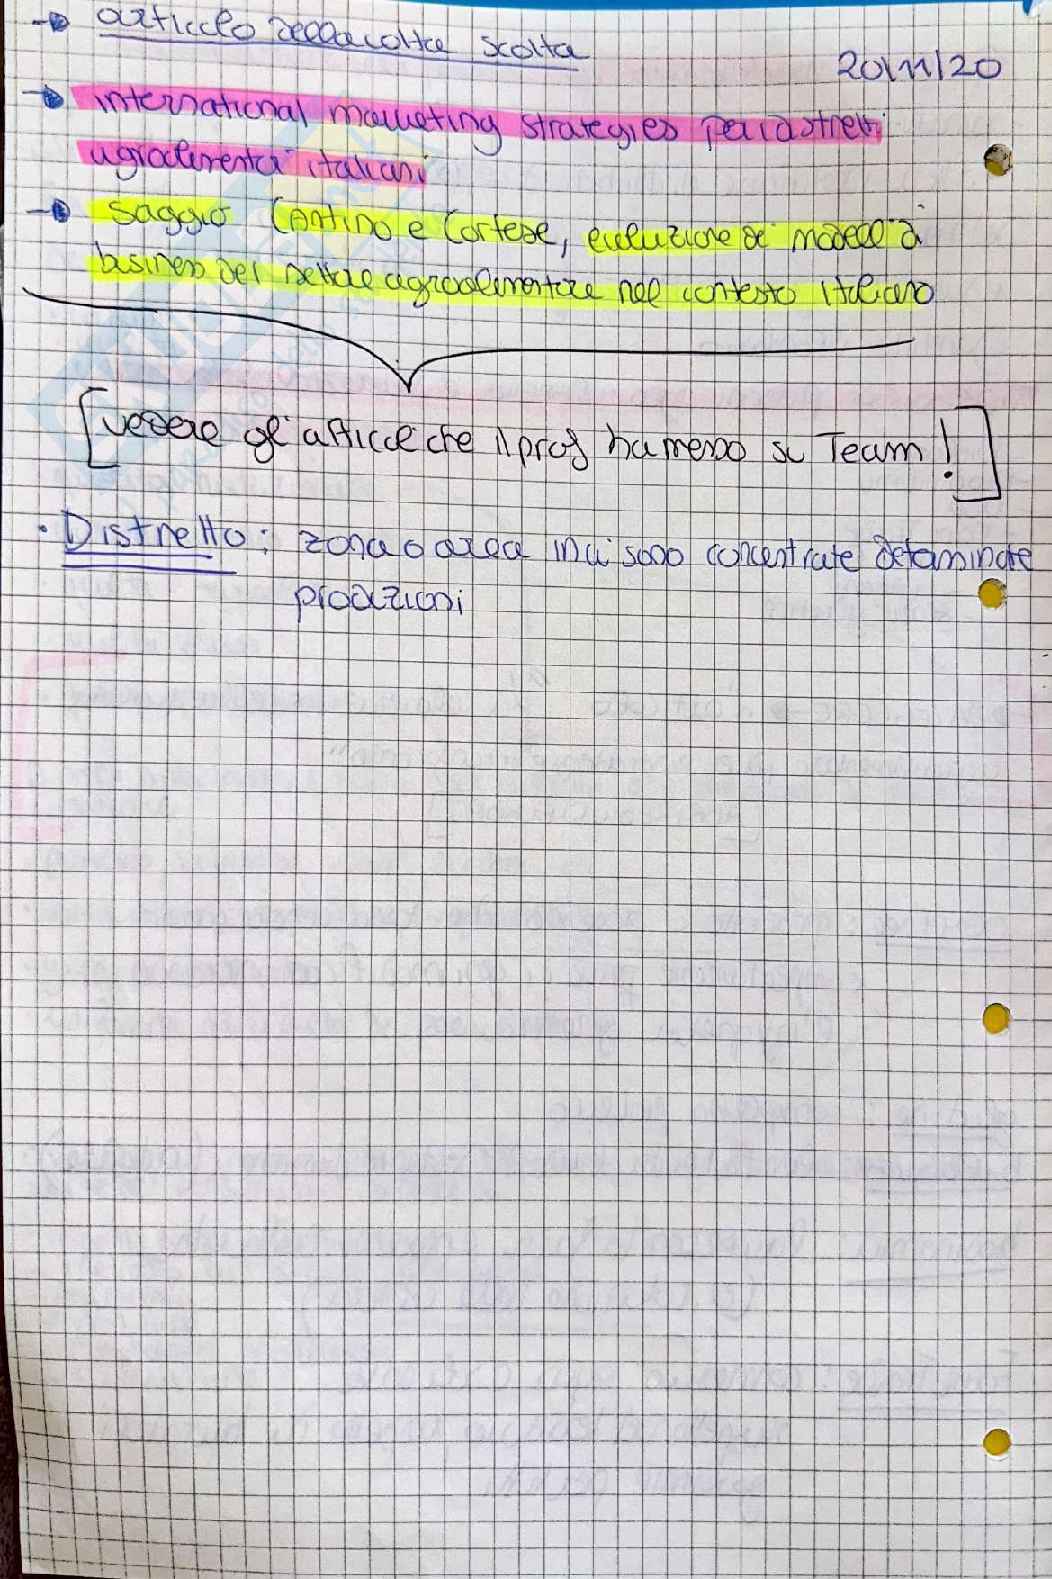 → articolo della volta scorta
20/11/20
→ international marketing strategies per i distretti
agroalimentari italiani
→ saggio Contino e Cortese, evoluzione dei modelli di
business del settore agroalimentare nel contesto italiano
[vedere gli articoli che il prof ha messo su Team!]
• Distretto: zona o area in cui sono concentrate determinate
produzioni